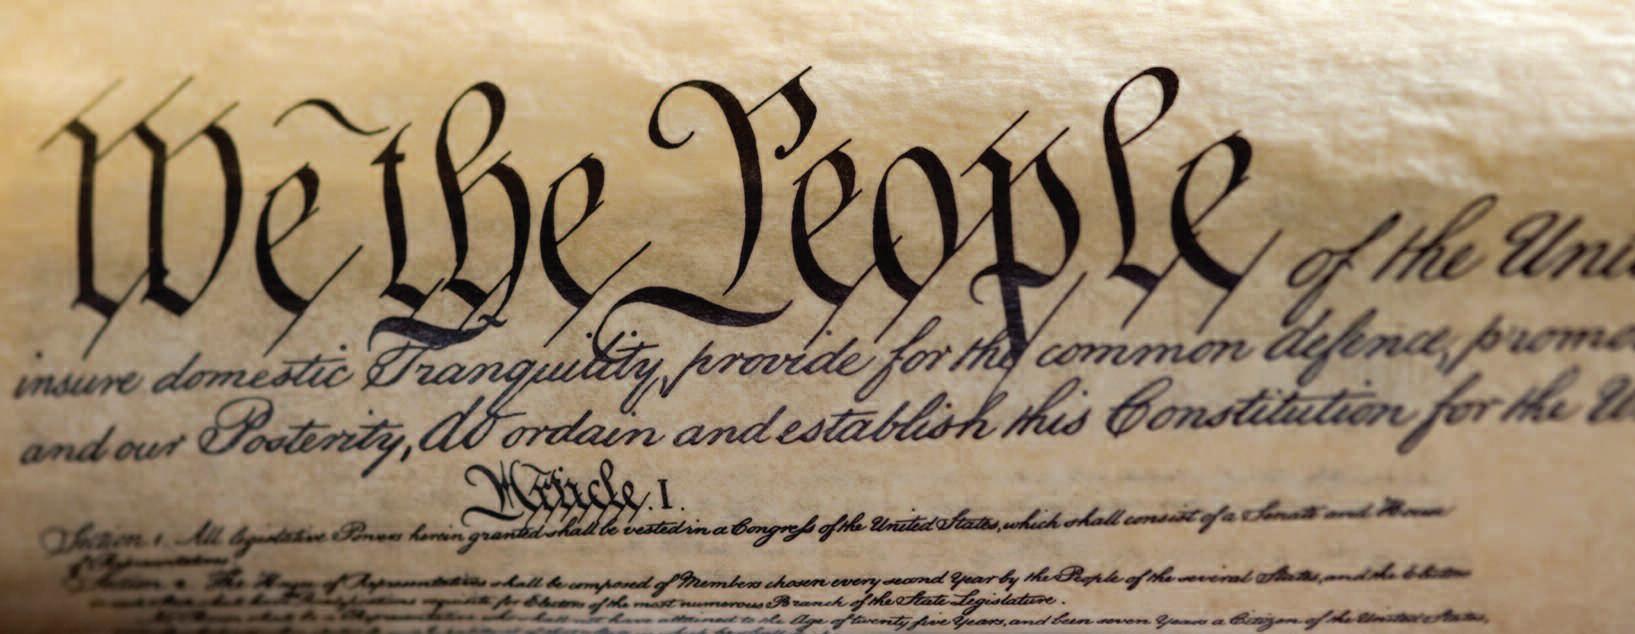 We the People of the Uni
insure domestic Tranquility, provide for the common defence, promo
and our Posterity, do ordain and establish this Constitution for the U
Article. I.
Section 1. All legislative Powers herein granted shall be vested in a Congress of the United States, which shall consist of a Senate and House
of Representatives.
Section 2. The House of Representatives shall be composed of Members chosen every second Year by the People of the several States, and the Electors
requisite for Electors of the most numerous Branch of the State Legislature.
have attained to the Age of twenty five Years, and been seven Years a Citizen of the United States,